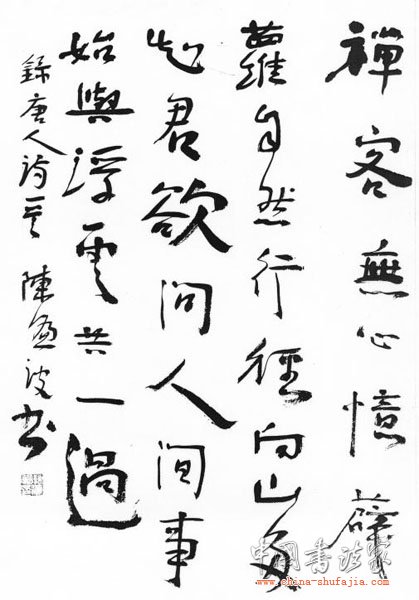 禪客無心憶薜
蘿自然行徑向山多
知君欲問人間事
始與浮雲共一過
錄唐人詩 陳 波書
中国书法家
www.china-shufajia.com